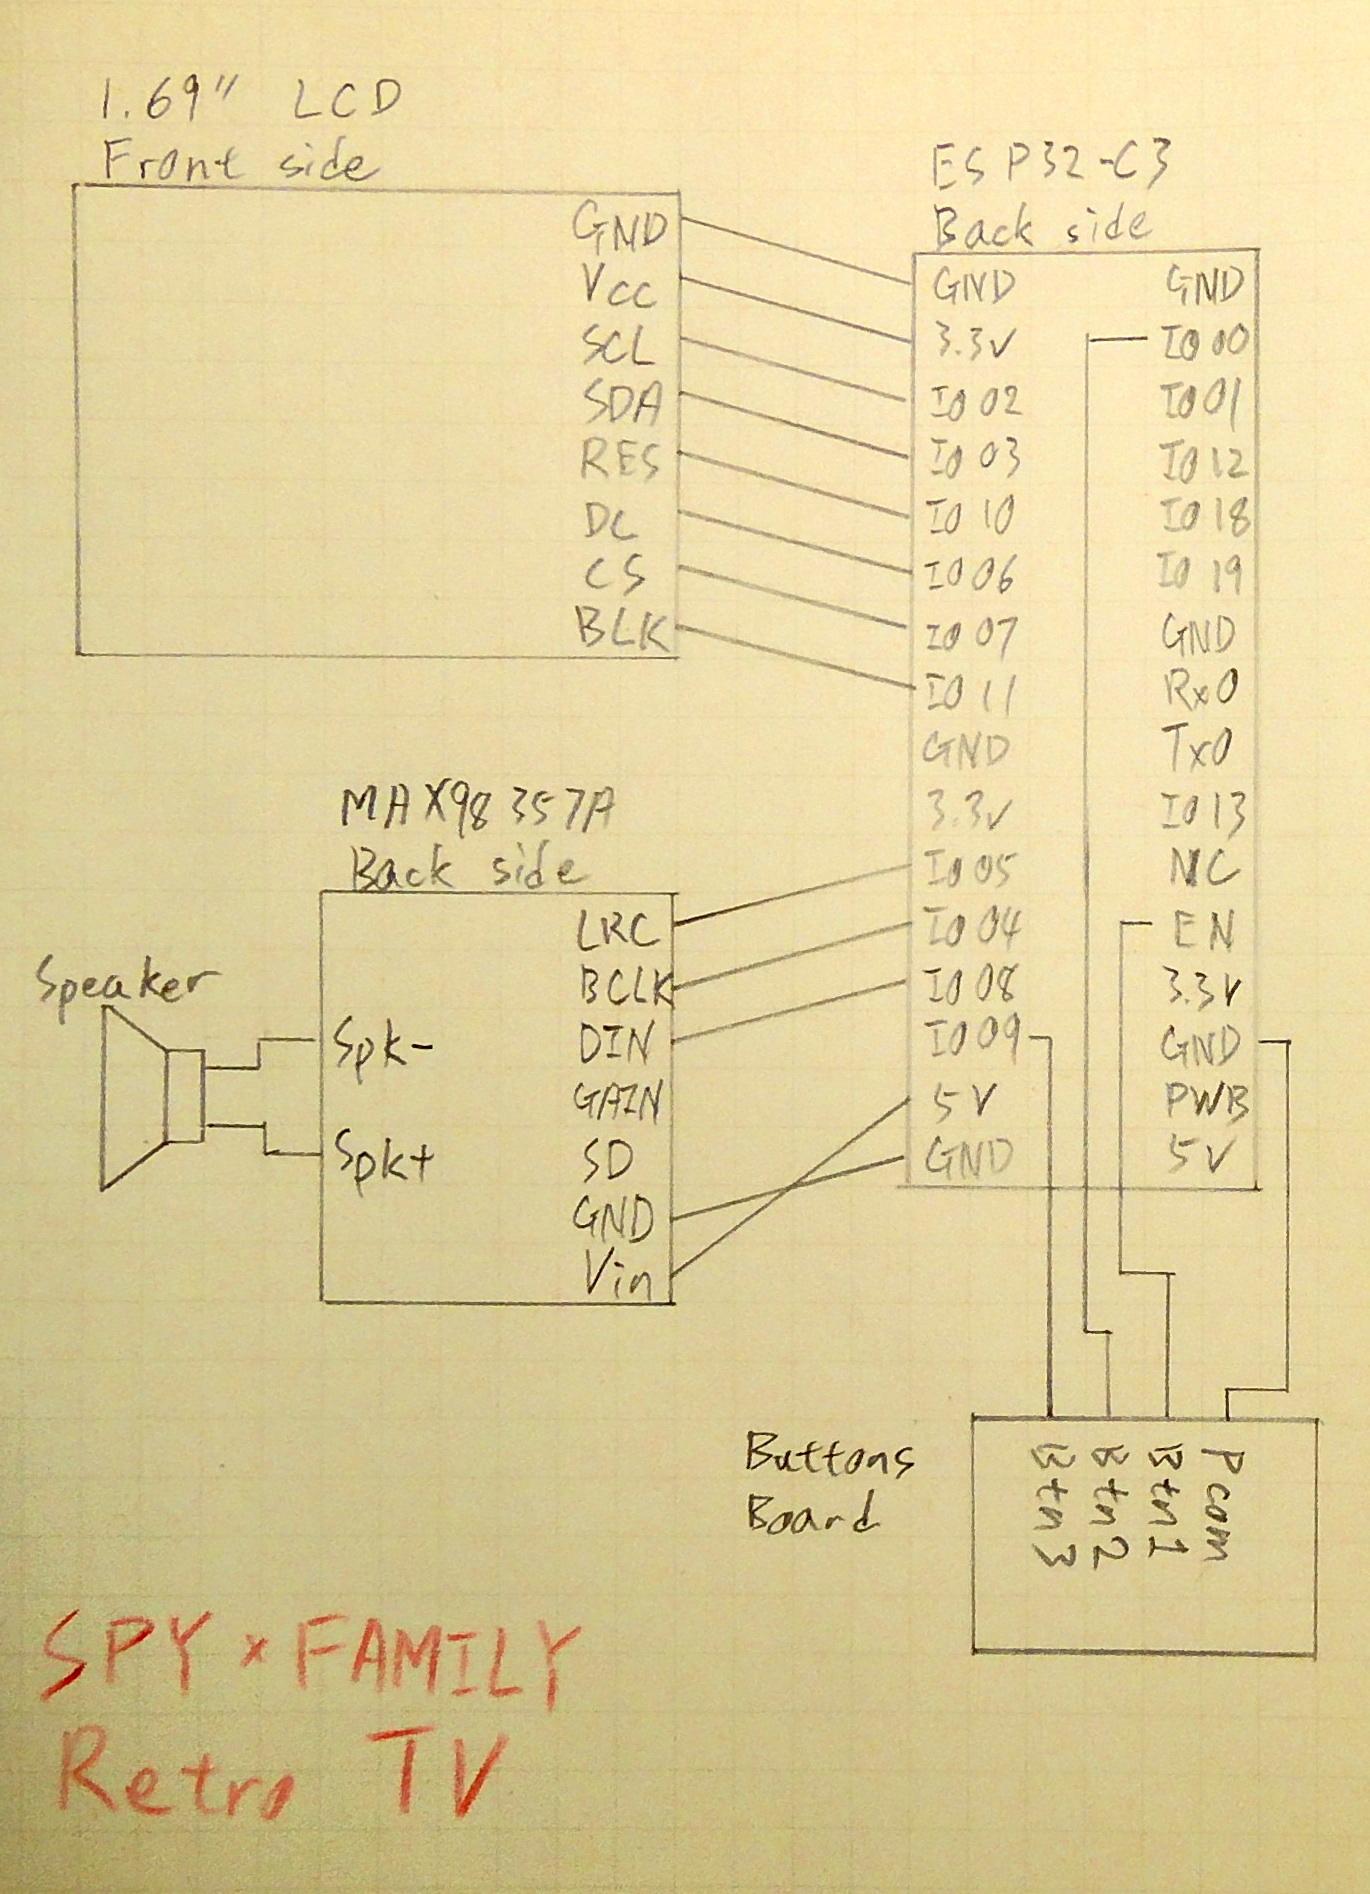 1.69" LCD
Front side
GND
Vcc
SCL
SDA
RES
DC
CS
BLK
ESP32-C3
Back side
GND
3.3v
IO 02
IO 03
IO 10
IO 06
IO 07
IO 11
GND
3.3v
IO 05
IO 04
IO 08
IO 09
5V
GND
GND
IO 00
IO 01
IO 12
IO 18
IO 19
GND
Rx0
Tx0
IO 13
NC
EN
3.3v
GND
PWB
5V
MAX98357A
Back side
LRC
BCLK
DIN
GAIN
SD
GND
Vin
Speaker
Spk-
Spk+
Buttons
Board
Btn3
Btn2
Btn1
Pcom
SPY×FAMILY
Retro TV